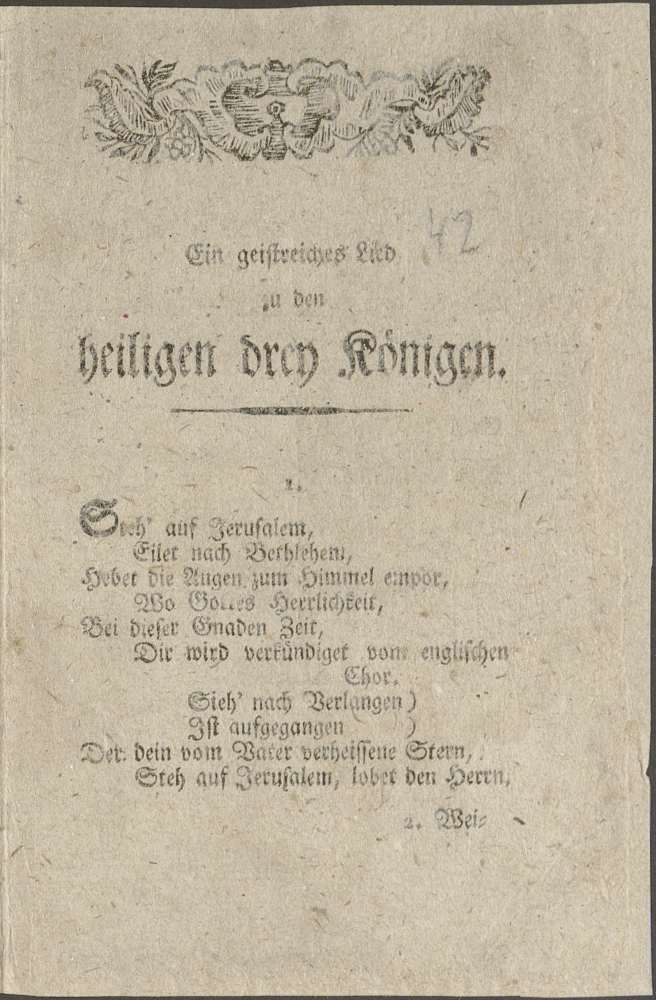 42
Ein geistreiches Lied
zu den
heiligen drey Königen.
1.
Steh' auf Jerusalem,
Eilet nach Bethlehem,
Hebet die Augen zum Himmel empor,
Wo Gottes Herrlichkeit,
Bei dieser Gnaden Zeit,
Dir wird verkündiget vom englischen
Chor.
Sieh' nach Verlangen)
Ist aufgegangen )
Der dein vom Vater verheissene Stern,
Steh auf Jerusalem, lobet den Herrn.
2. Wei-